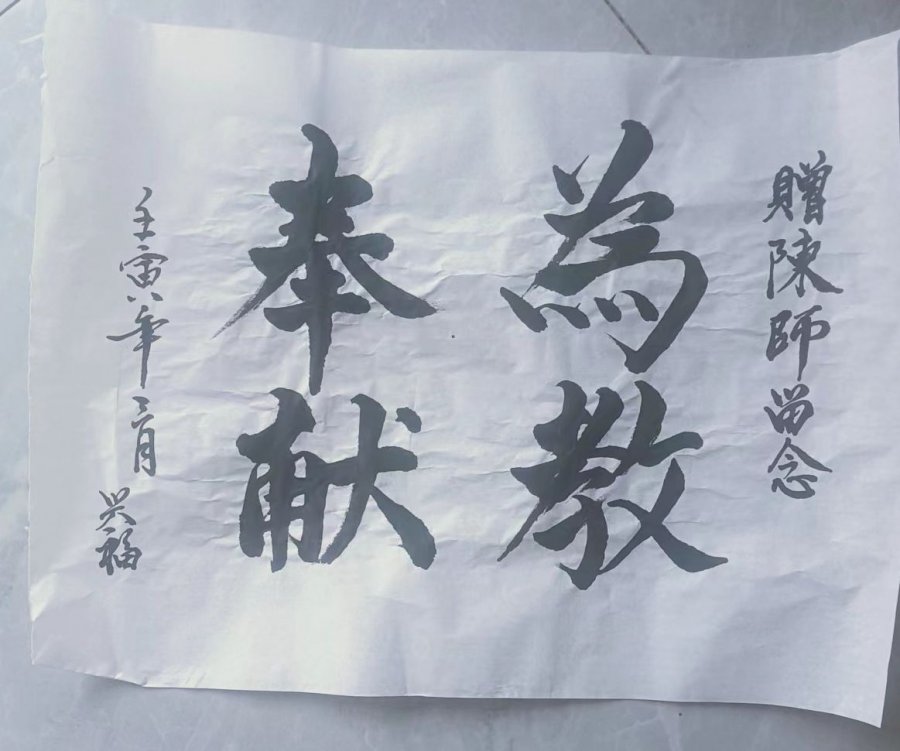 贈陳師留念
為教
奉献
壬寅年三月
兴福